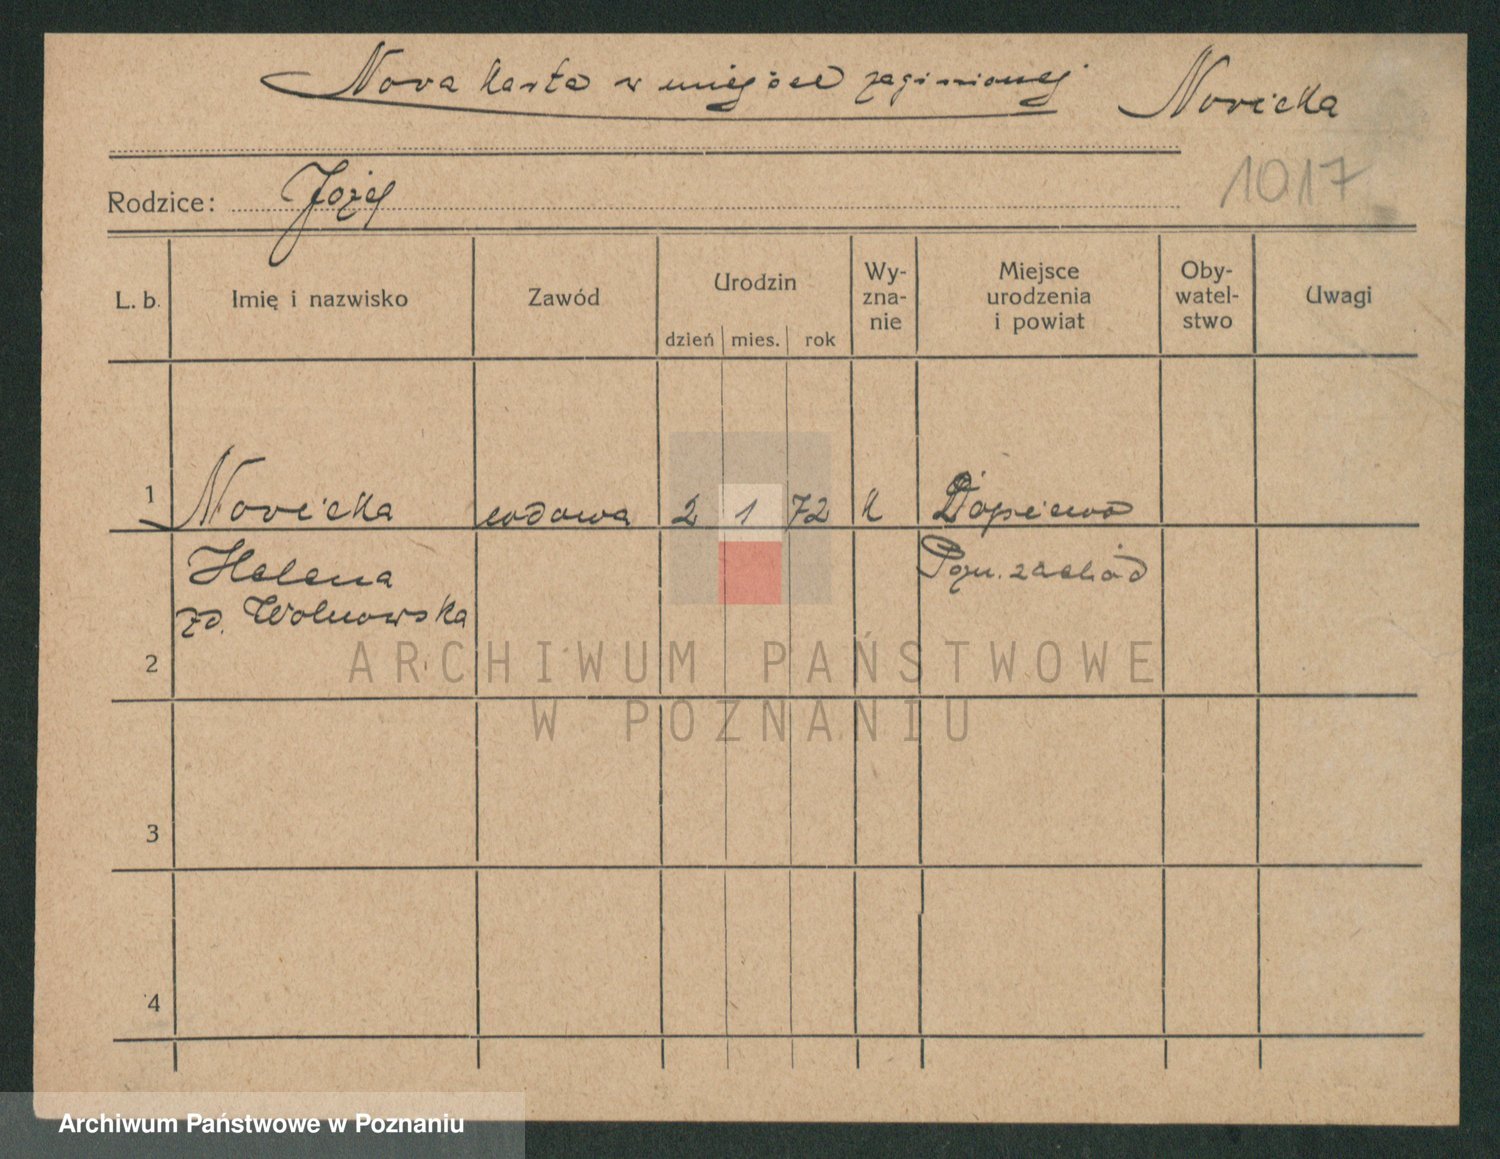 Nowa karta w miejsce zaginionej
Nowicka
1017
Rodzice: Józef
L. b.
Imię i nazwisko
Zawód
Urodzin
dzień mies. rok
Wy-
zna-
nie
Miejsce
urodzenia
i powiat
Oby-
watel-
stwo
Uwagi
1 Nowicka wdowa 2 1 72 k Dopiewo
Helena Pozn. zachód
zd. Wolnowska
2
3
4
ARCHIWUM PAŃSTWOWE
W POZNANIU
Archiwum Państwowe w Poznaniu